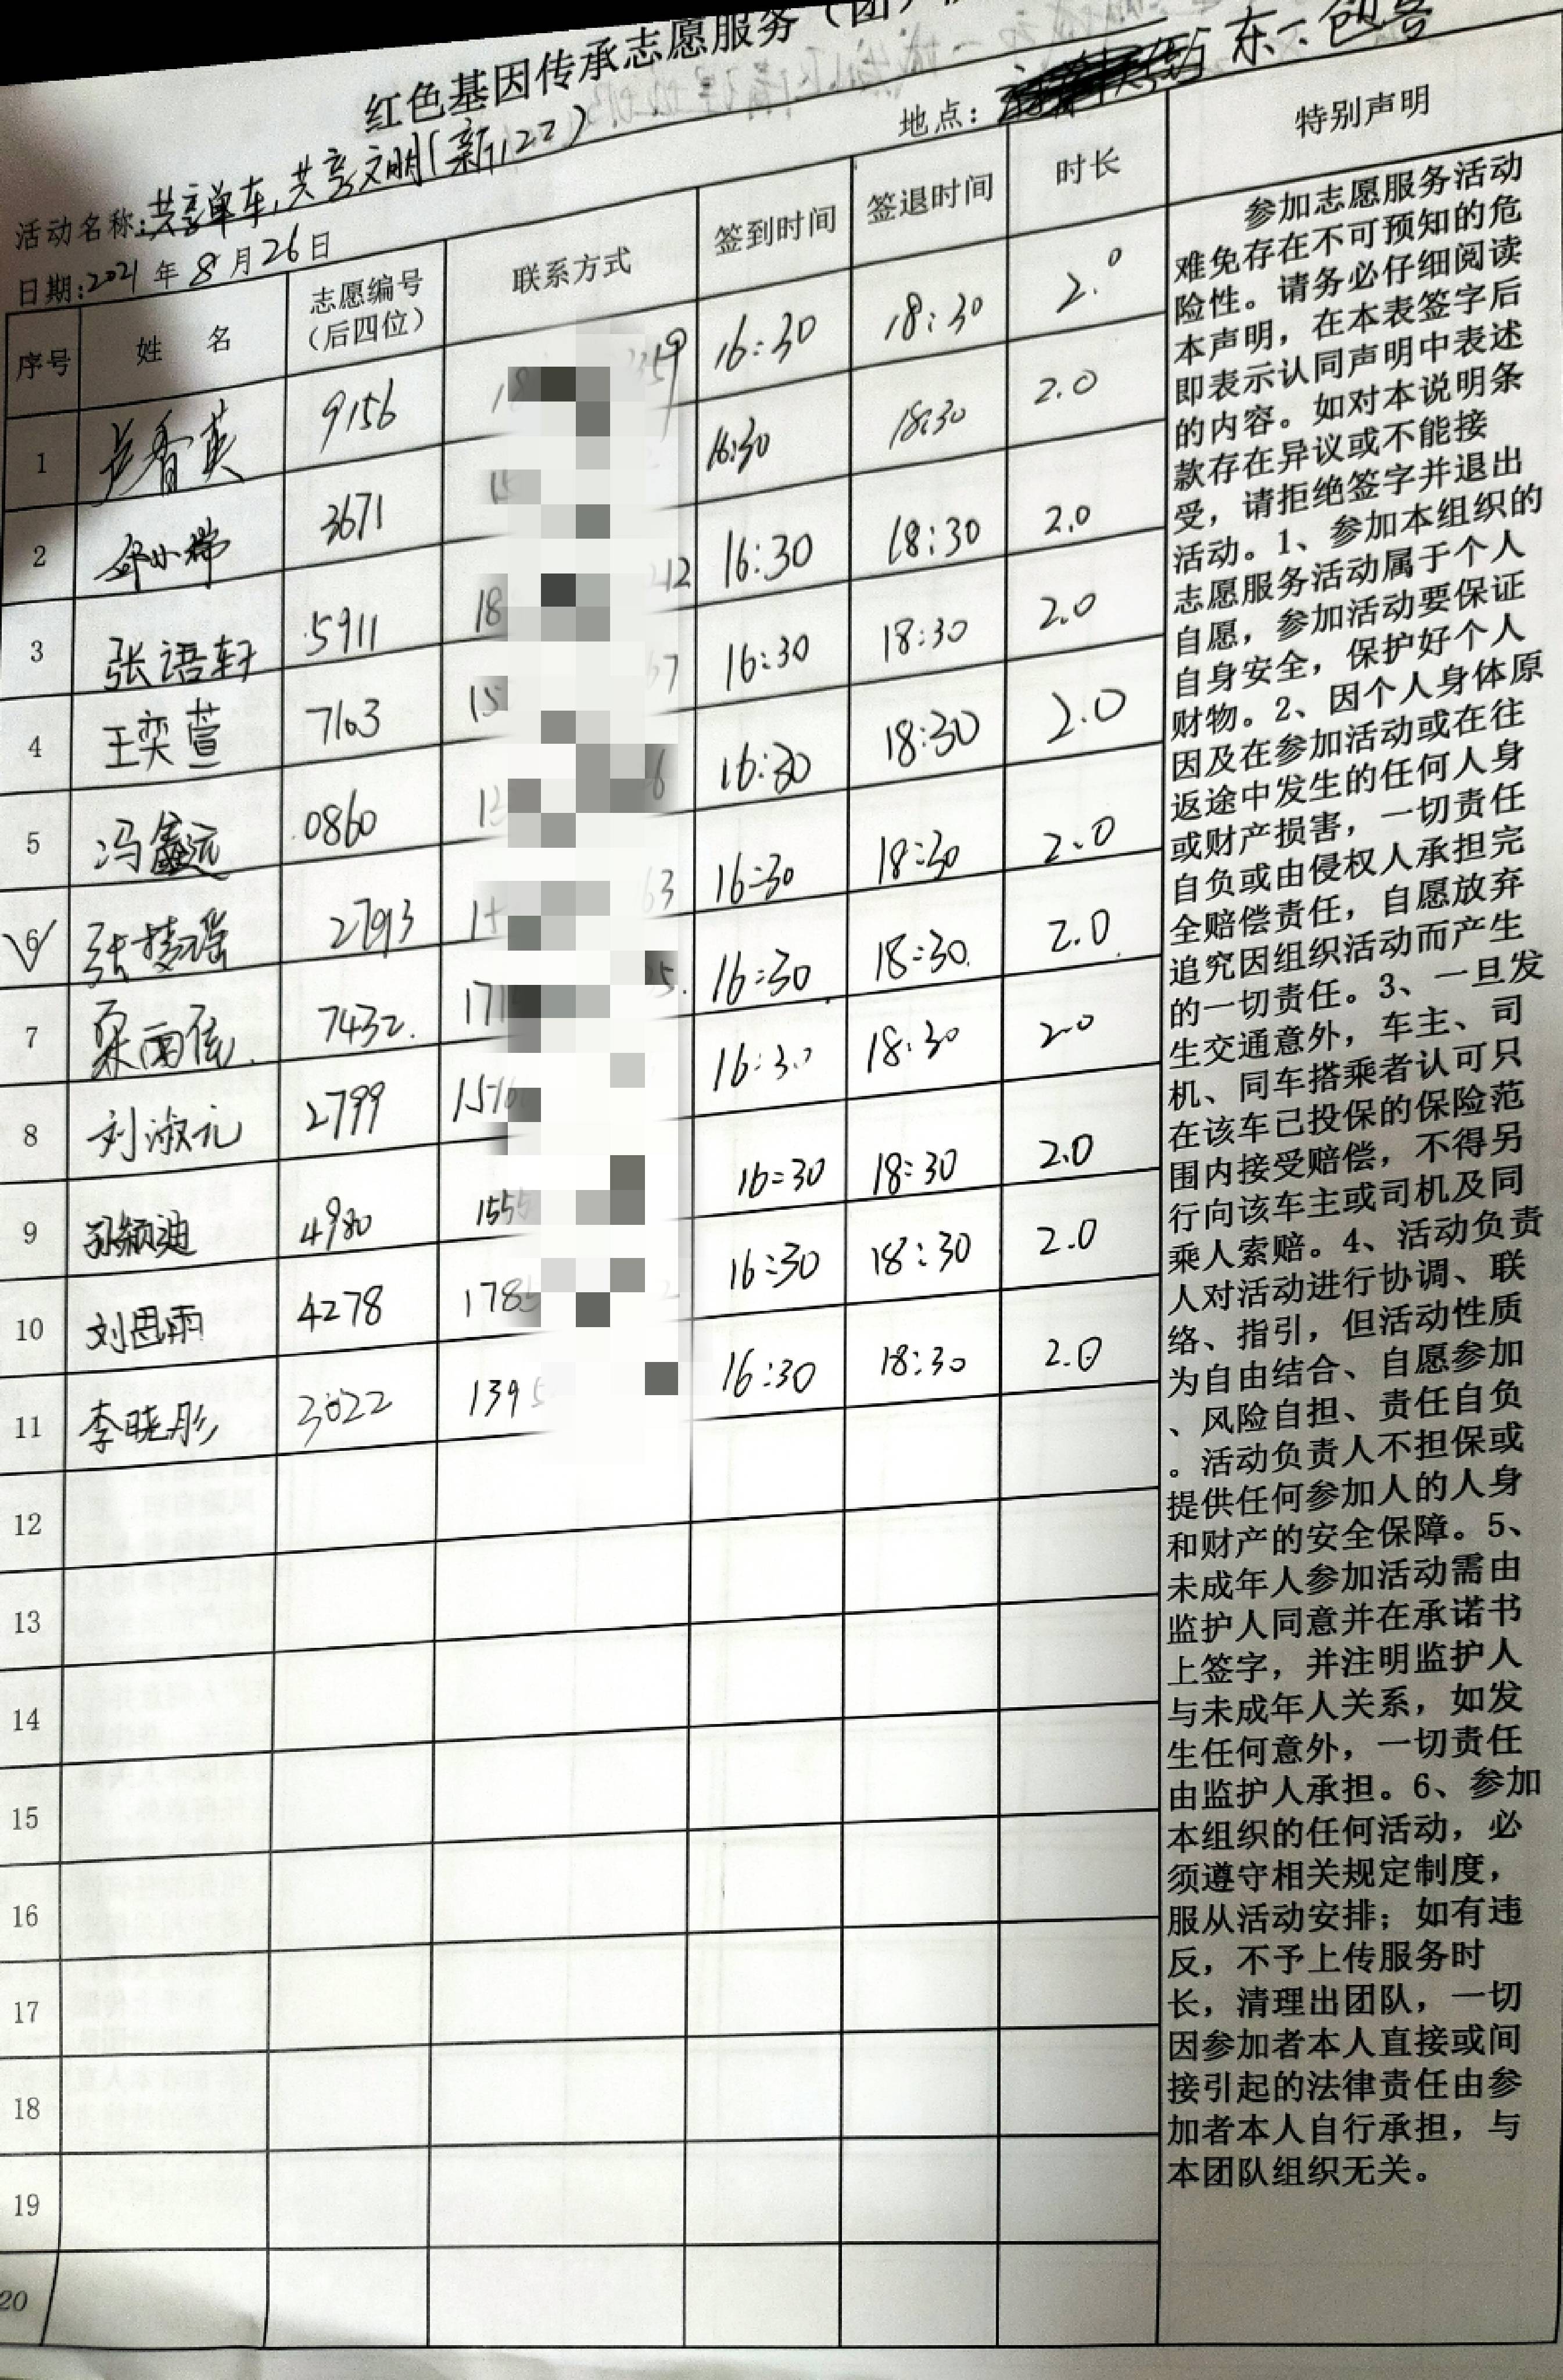 红色基因传承志愿服务（团）
活动名称:共享单车,共享文明(新122) 地点: 东二
日期:2021年8月26日
序号 姓 名 志愿编号（后四位） 联系方式 签到时间 签退时间 时长 特别声明
1 卢香英 9156 16:30 18:30 2.0
2 小 3671 16:30 18:30 2.0
3 张语轩 5911 18 16:30 18:30 2.0
4 王奕萱 7103 15 16:30 18:30 2.0
5 冯鑫远 0860 16:30 18:30 2.0
6 张 瑶 2793 16:30 18:30 2.0
7 雨 7432. 171 16:30 18:30. 2.0
8 刘淑元 2799 1516 16:30 18:30 2.0
9 孙颖迪 4980 1555 16:30 18:30 2.0
10 刘思雨 4278 1785 16:30 18:30 2.0
11 李晓彤 3022 1395 16:30 18:30 2.0
12
13
14
15
16
17
18
19
20
参加志愿服务活动
难免存在不可预知的危
险性。请务必仔细阅读
本声明，在本表签字后
即表示认同声明中表述
的内容。如对本说明条
款存在异议或不能接
受，请拒绝签字并退出
活动。1、参加本组织的
志愿服务活动属于个人
自愿，参加活动要保证
自身安全，保护好个人
财物。2、因个人身体原
因及在参加活动或在往
返途中发生的任何人身
或财产损害，一切责任
自负或由侵权人承担完
全赔偿责任，自愿放弃
追究因组织活动而产生
的一切责任。3、一旦发
生交通意外，车主、司
机、同车搭乘者认可只
在该车已投保的保险范
围内接受赔偿，不得另
行向该车主或司机及同
乘人索赔。4、活动负责
人对活动进行协调、联
络、指引，但活动性质
为自由结合、自愿参加
、风险自担、责任自负
。活动负责人不担保或
提供任何参加人的人身
和财产的安全保障。5、
未成年人参加活动需由
监护人同意并在承诺书
上签字，并注明监护人
与未成年人关系，如发
生任何意外，一切责任
由监护人承担。6、参加
本组织的任何活动，必
须遵守相关规定制度，
服从活动安排；如有违
反，不予上传服务时
长，清理出团队，一切
因参加者本人直接或间
接引起的法律责任由参
加者本人自行承担，与
本团队组织无关。